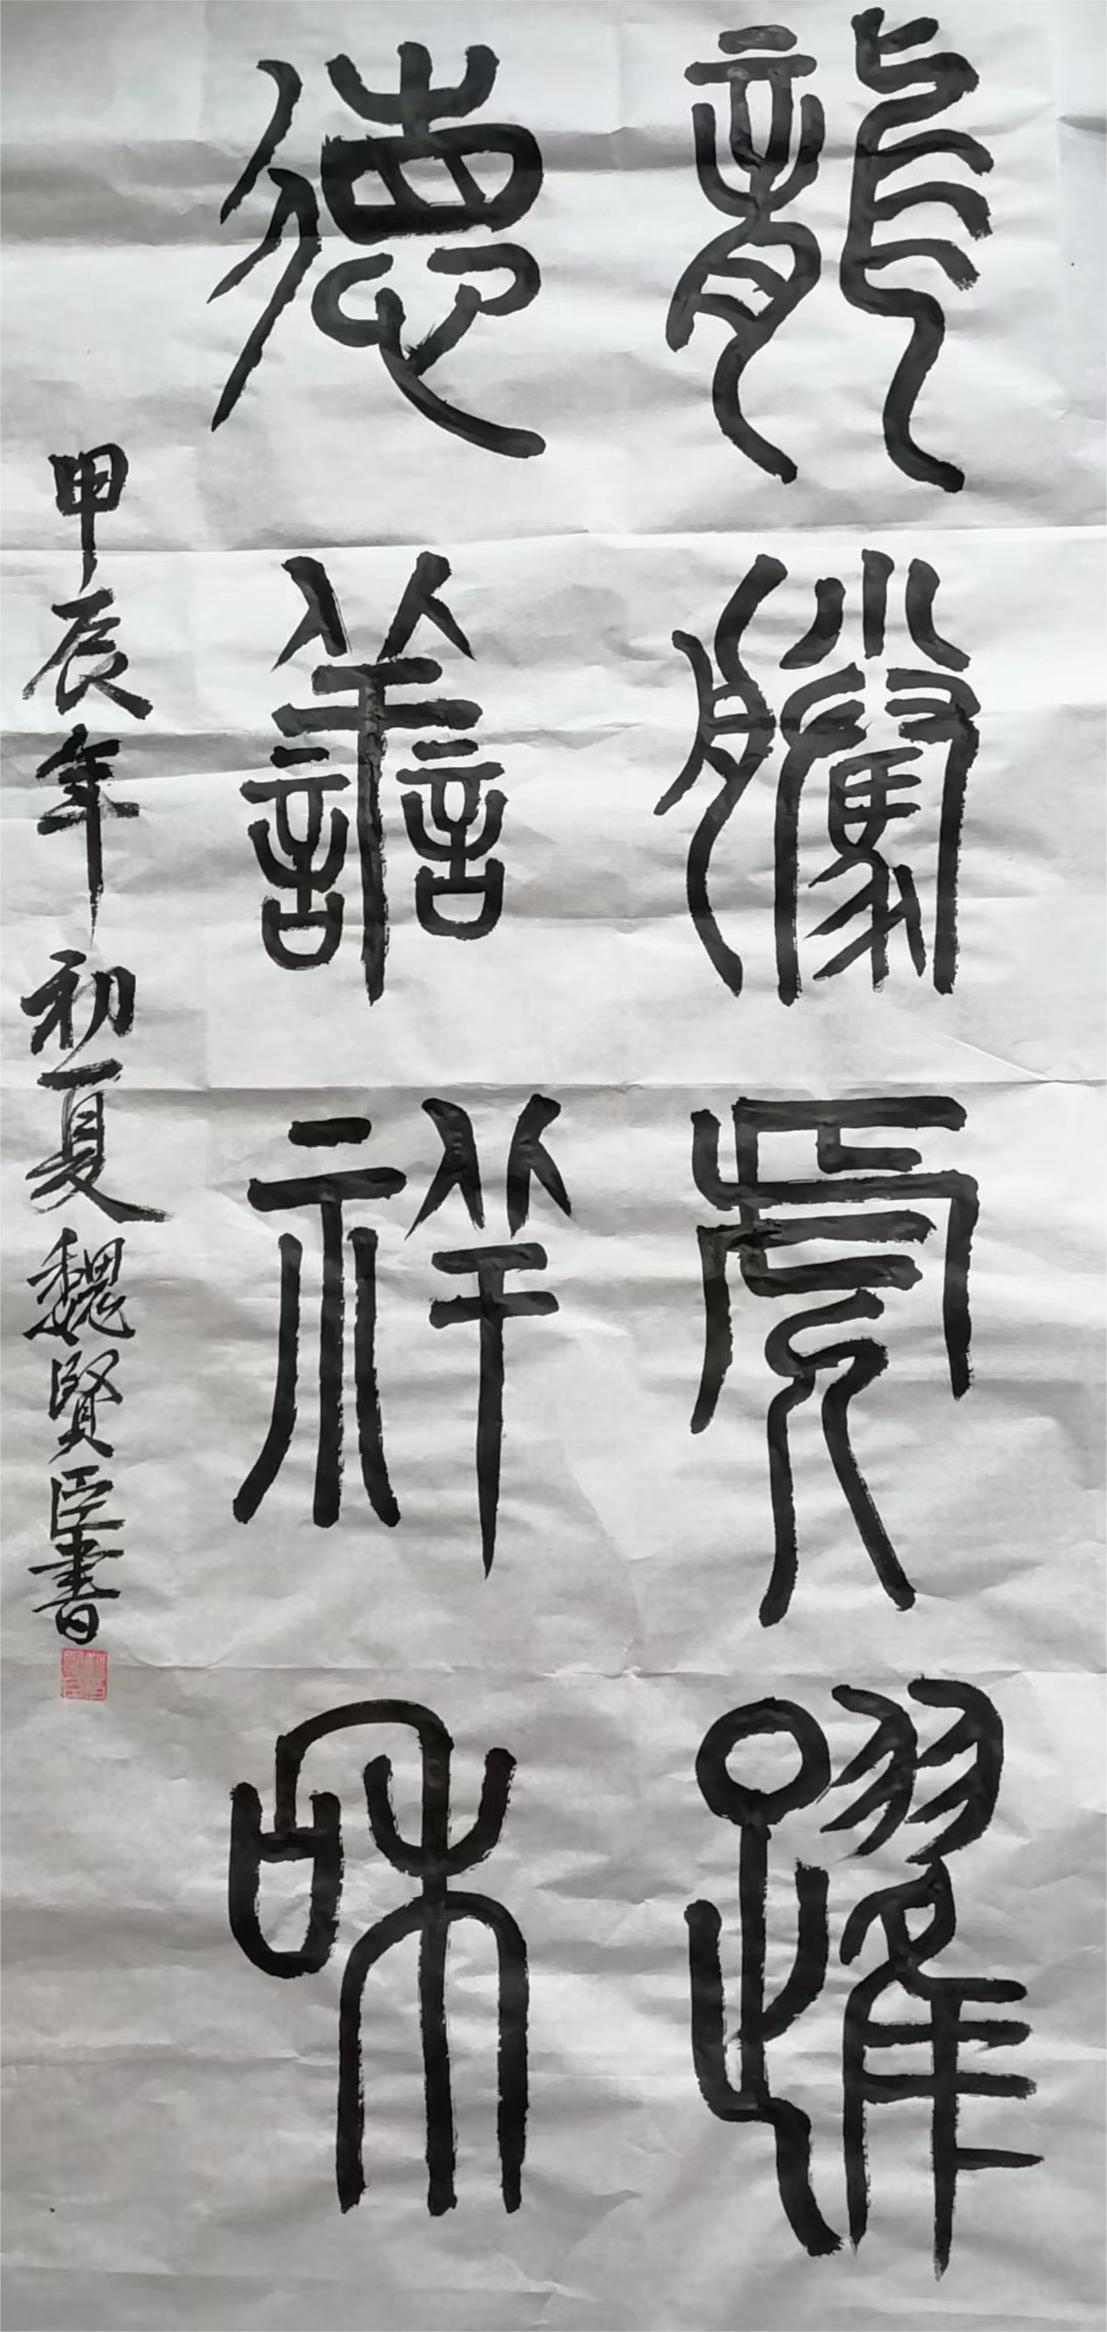 龍騰虎躍
德善祥和
甲辰年初夏魏賢臣書